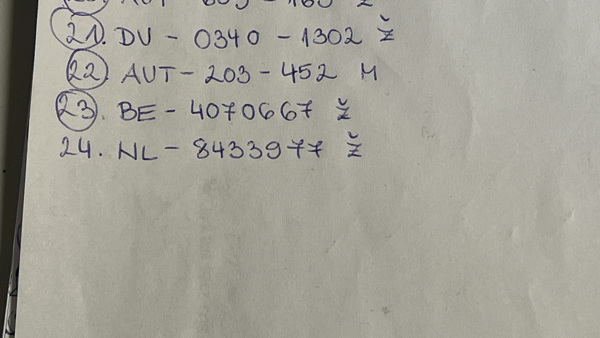 21. DV - 0340 - 1302 Ž
22. AUT - 203 - 452 M
23. BE - 4070667 Ž
24. NL - 8433977 Ž